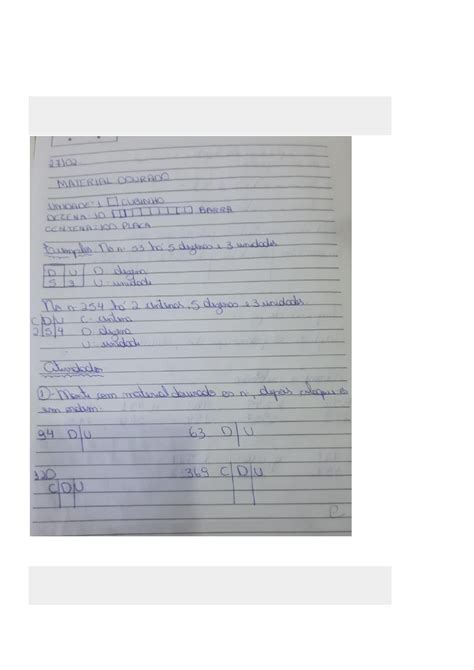 27/02
MATERIAL DOURADO
UNIDADE: 1 CUBINHO
DEZENA: 10 BARRA
CENTENA: 100 PLACA
Exemplos: No n: 53 há 5 dezenas e 3 unidades
D U D dezena
5 3 U: unidade
No n 254 há 2 centenas, 5 dezenas e 3 unidades.
C D U C- centena
2 5 4 D dezena
U- unidade
Atividades
1)- Monte com material dourado os n:, depois coloque os
em ordem:
94 D U 63 D U
120 369 C D U
C D U